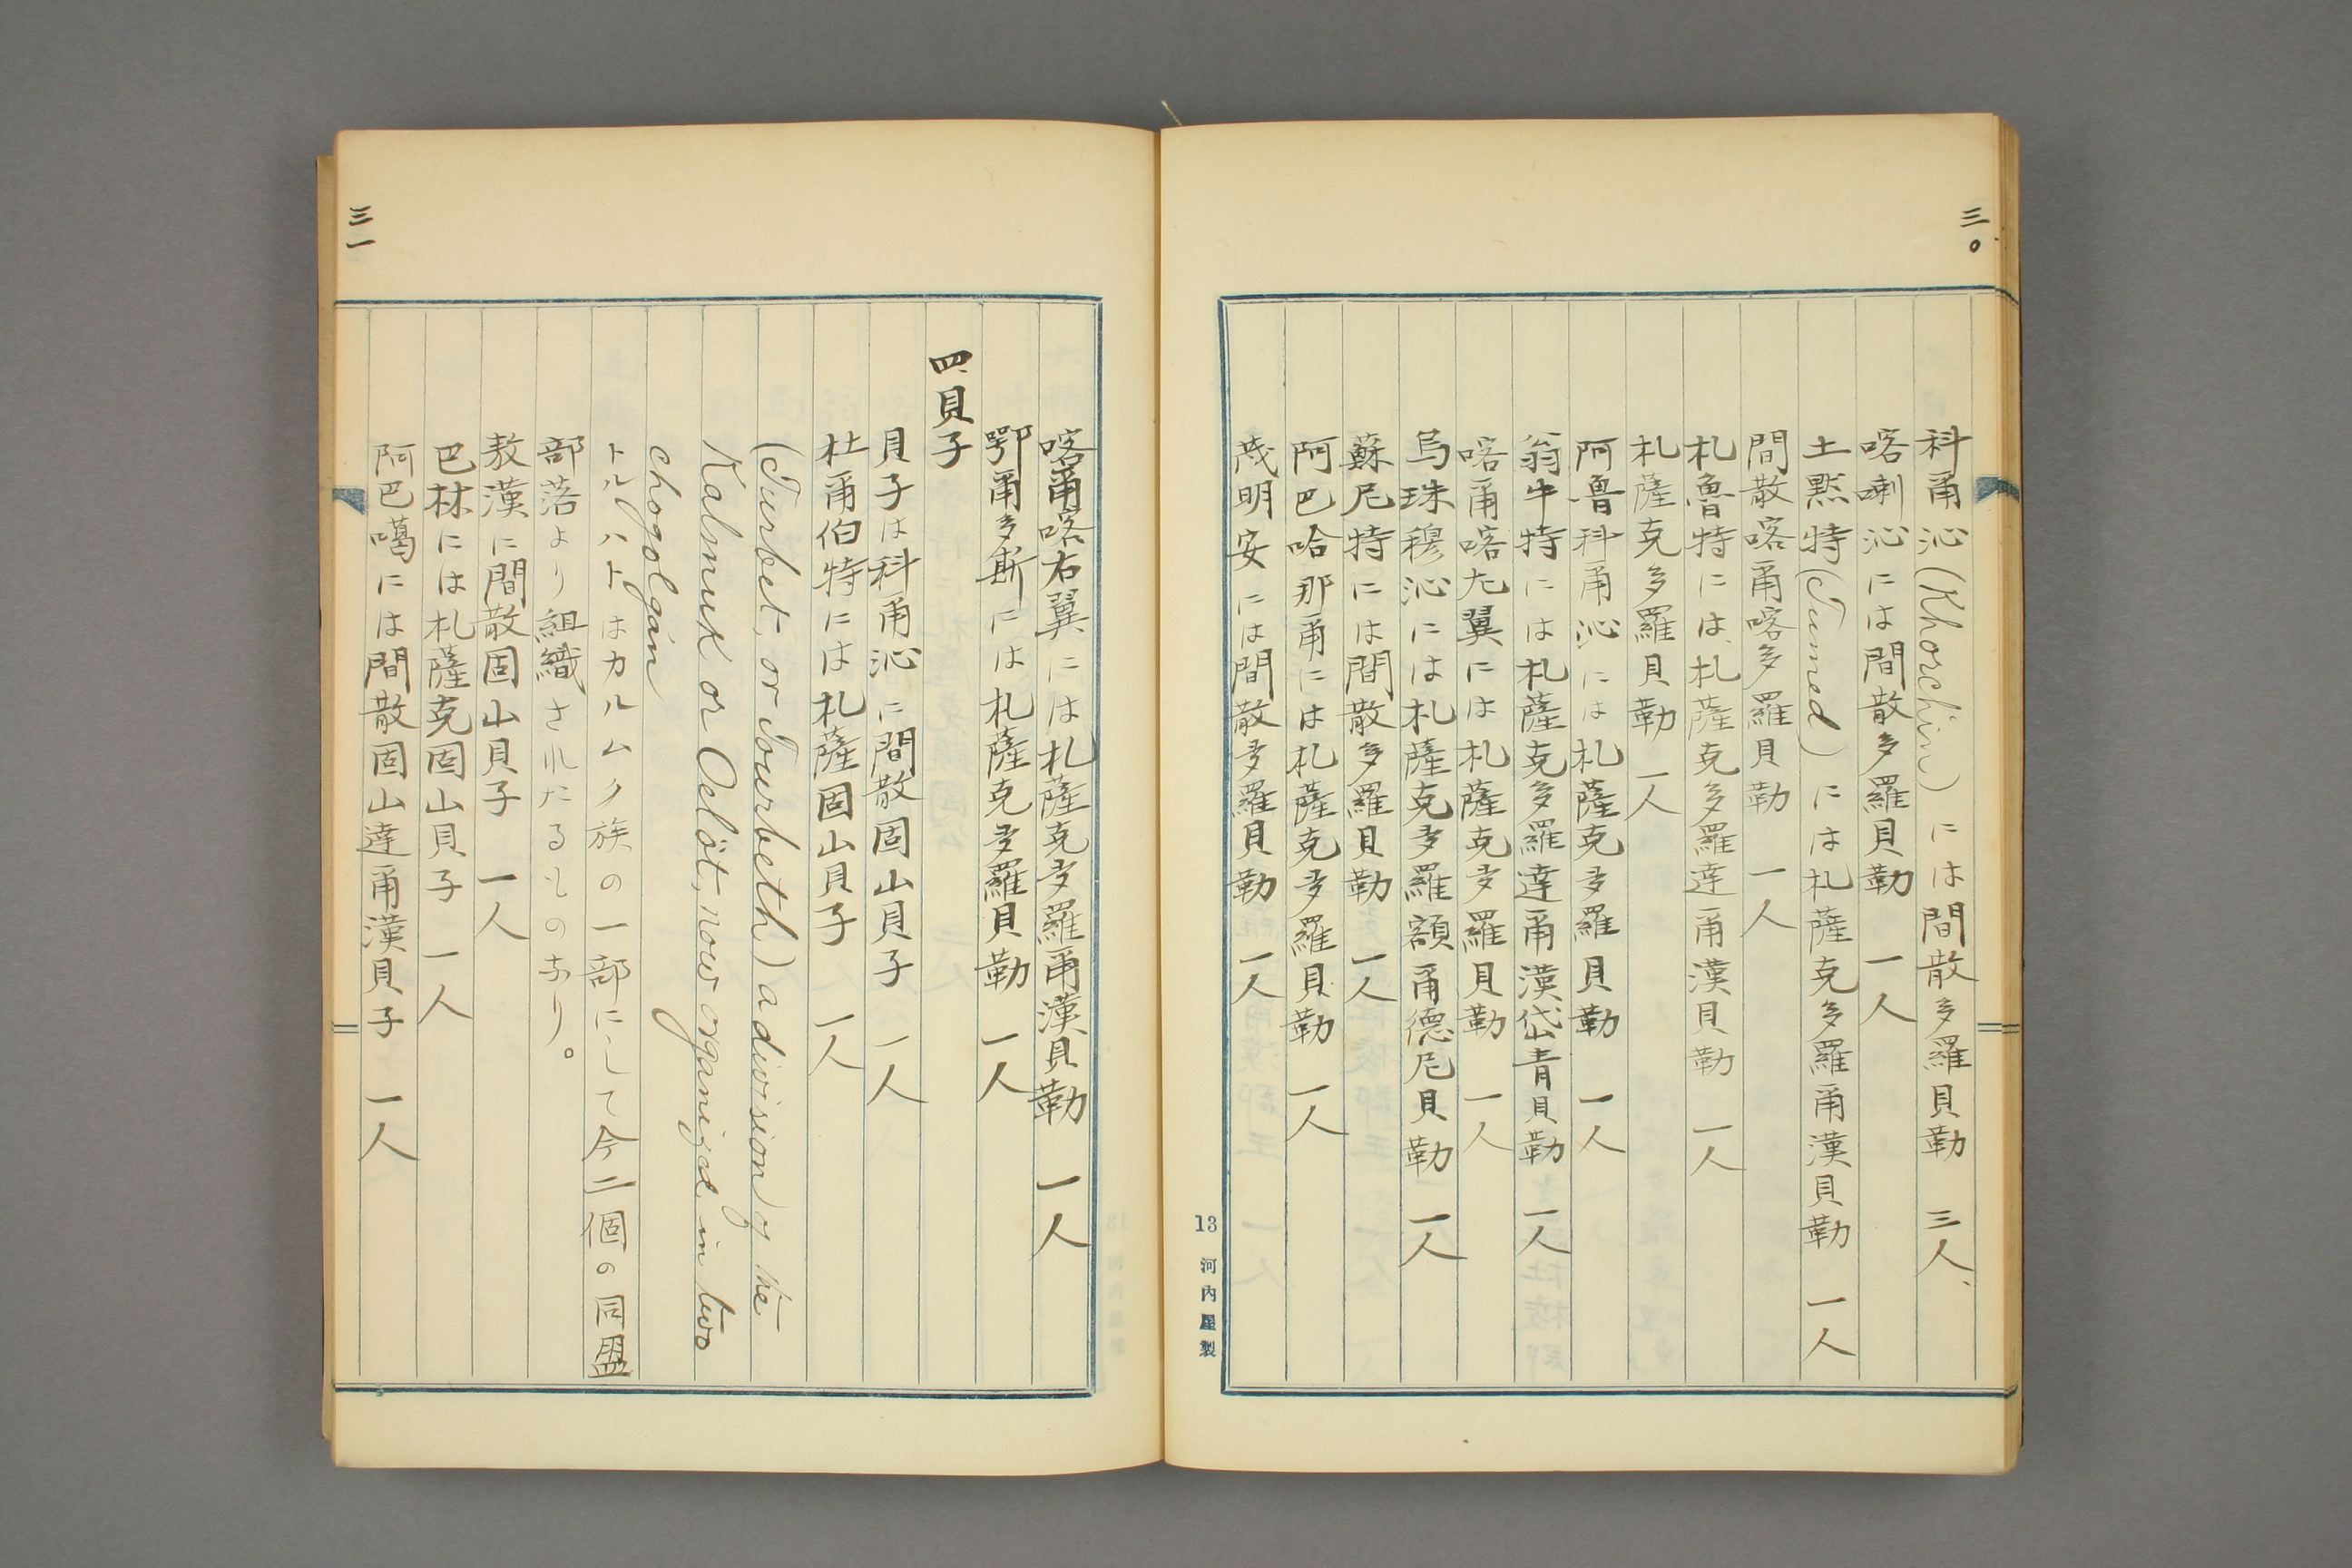 三〇
科甬沁(Khorchin)には間散多羅貝勒 三人、
喀喇沁には間散多羅貝勒 一人
土黙特(Tumed)には札薩克多羅甬漢貝勒 一人
間散喀甬喀多羅貝勒 一人
札魯特には、札薩克多羅達甬漢貝勒 一人
札薩克多羅貝勒 一人
阿魯科甬沁には札薩克多羅貝勒 一人
翁牛特には札薩克多羅達甬漢岱青貝勒 一人
喀甬喀左翼には札薩克多羅貝勒 一人
烏珠穆沁には札薩克多羅額甬德尼貝勒 一人
蘇尼特には間散多羅貝勒 一人
阿巴哈那甬には札薩克多羅貝勒 一人
茂明安には間散多羅貝勒 一人
13 河内屋製
喀甬喀右翼には札薩克多羅甬漢貝勒 一人
鄂甬多斯には札薩克多羅貝勒 一人
四、貝子
貝子は科甬沁に間散固山貝子 一人
杜甬伯特には札薩固山貝子 一人
(Turbet, or Tourbeth) a division of the
Kalmuk or Oelöt, now organized in two
chogolgán
トルハトはカルムク族の一部にして今二個の同盟
部落より組織されたるものあり。
敖漢に間散固山貝子 一人
巴林には札薩克固山貝子 一人
阿巴噶には間散固山達甬漢貝子 一人
三一